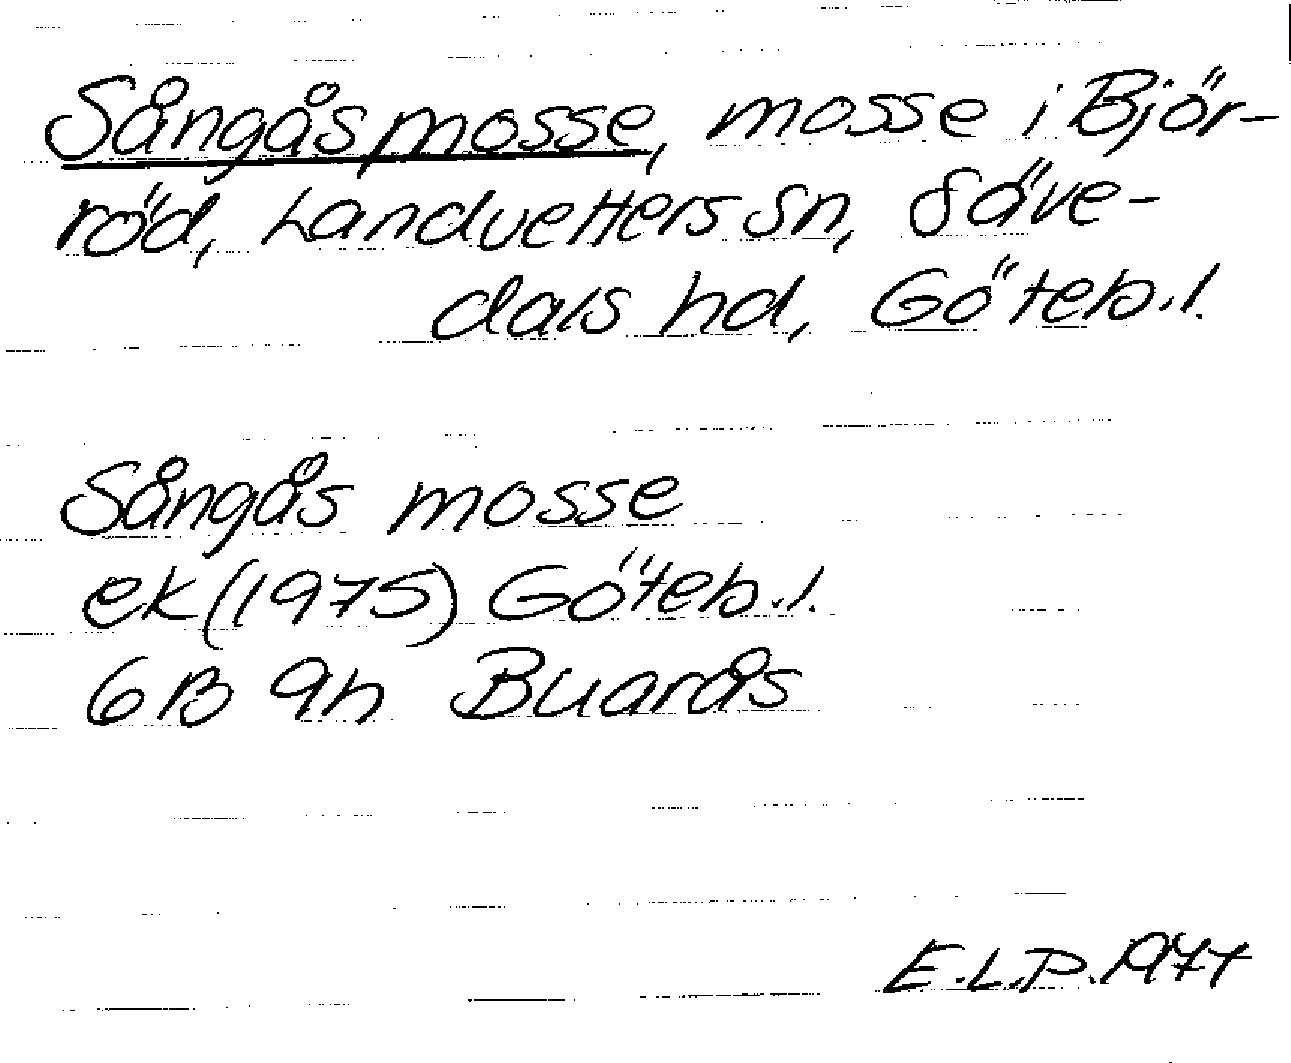 Sångåsmosse, mosse i Björ-
röd, Landvetters sn, Säve-
dals hd, Göteb.l.
Sångås mosse
ek (1975) Göteb.l.
6B 9h Buarås
E.L.P. 1977